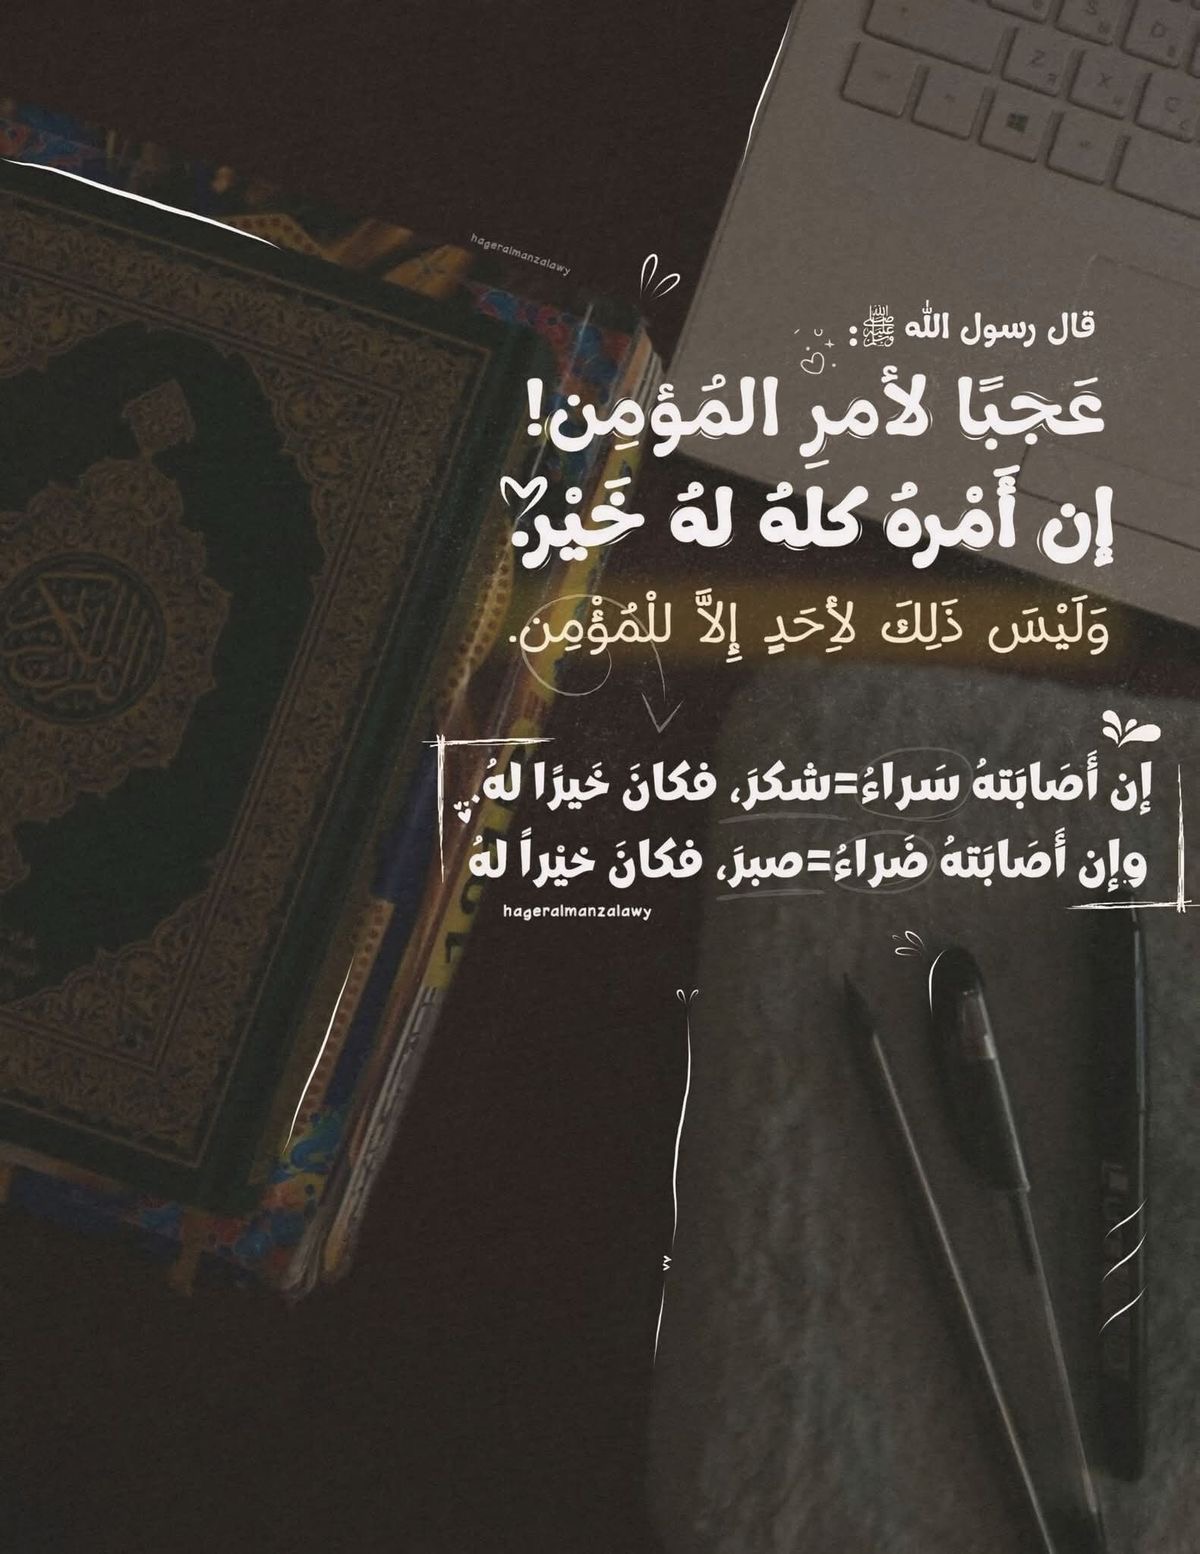 hageralmanzalawy
قال رسول الله ﷺ:
عَجبًا لأمرِ المُؤمِن!
إن أَمْرهُ كلهُ لهُ خَيْر.
وَلَيْسَ ذَلِكَ لأِحَدٍ إِلاَّ للْمُؤْمِن.
إن أَصَابَتهُ سَراءُ=شكرَ، فكانَ خَيرًا لهُ.
وإن أَصَابَتهُ ضَراءُ=صبرَ، فكانَ خيْراً لهُ
hageralmanzalawy